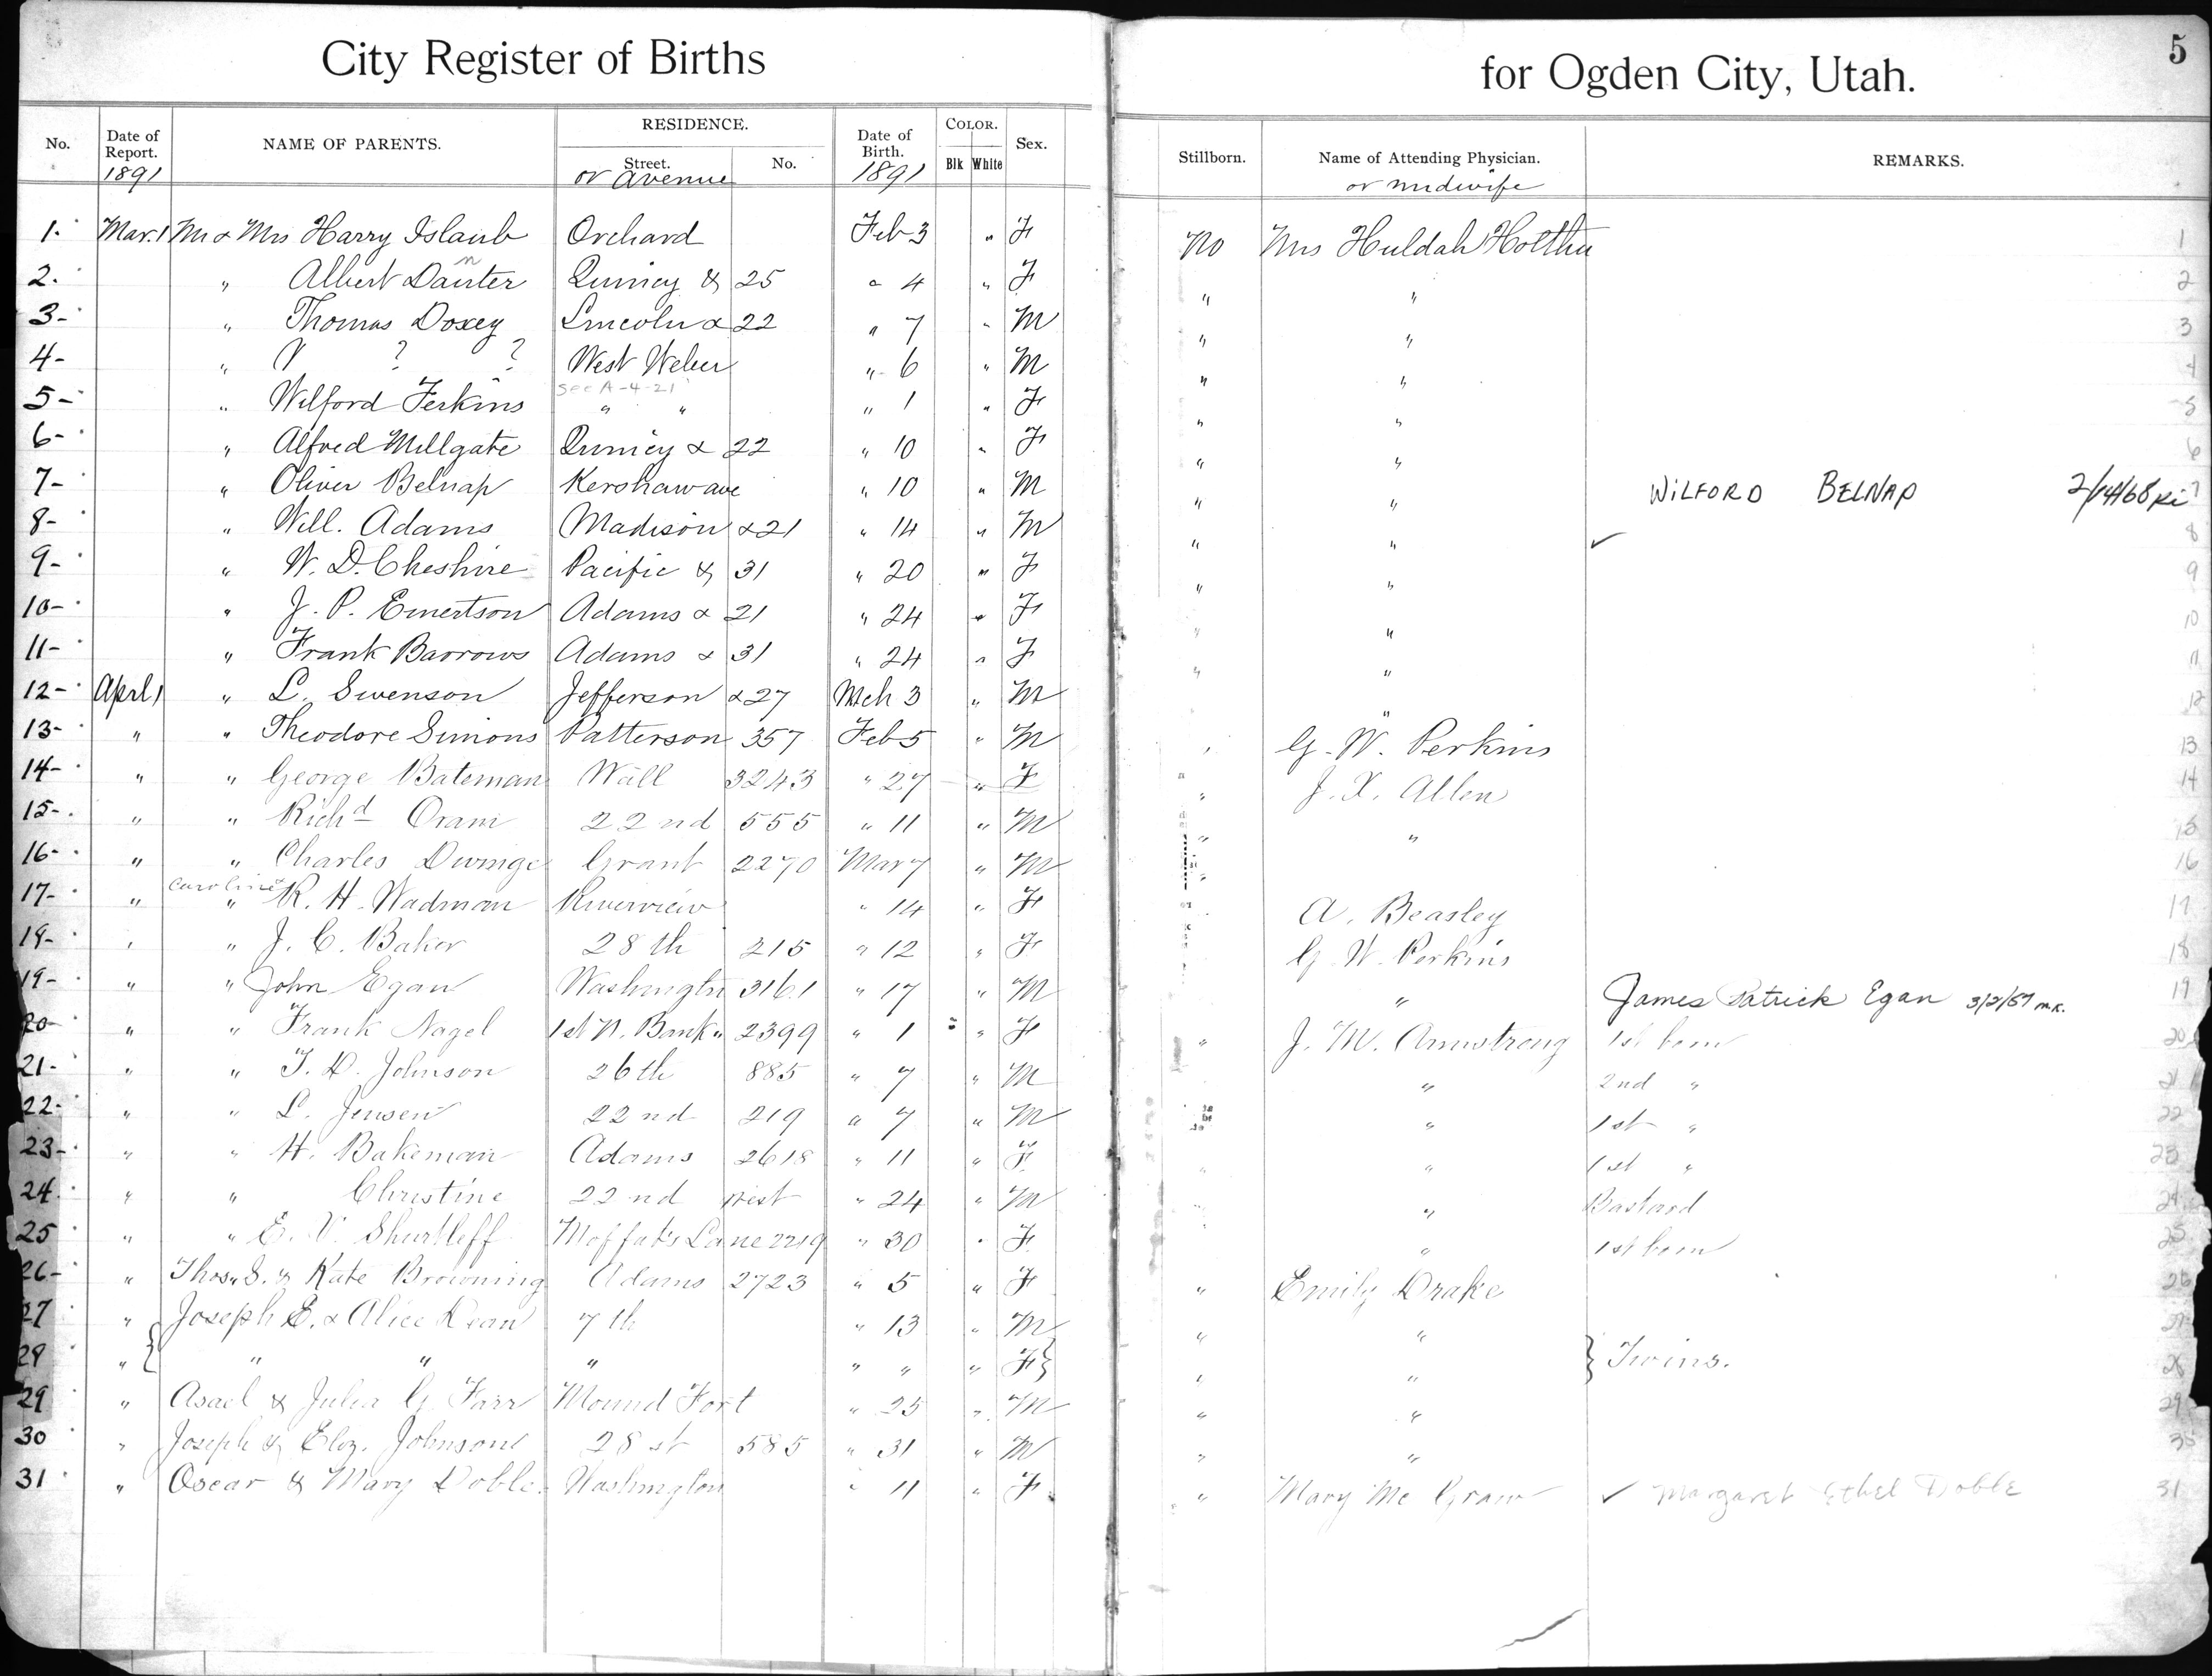 City Register of Births for Ogden City, Utah. 5
No. Date of Report. NAME OF PARENTS. RESIDENCE. Street. No. Date of Birth. COLOR. Blk White Sex. Stillborn. Name of Attending Physician. REMARKS.
1891 or Avenue 1891 or midwife
1. Mar. 1 Mr & Mrs Harry Islaub Orchard Feb 3 " F No Mrs Huldah 1
n
2. " Albert Dauter Quincy & 25 " 4 " F " " 2
3- " Thomas Doxey Lincoln & 22 " 7 " M " " 3
4- " V ? ? West Weber " 6 " M " " 4
See A-4-21
5- " Wilford Ferkins " " " 1 " F " " 5
6- " Alfred Millgate Quincy & 22 " 10 " F " " 6
7- " Oliver Belnap Kershaw ave " 10 " M " " WILFORD BELNAP 7
8- " Will. Adams Madison & 21 " 14 " M " " ✓ 8
9- " W. D. Cheshire Pacific & 31 " 20 " F " " 9
10- " J. P. Emertson Adams & 21 " 24 " F " " 10
11- " Frank Barrows Adams & 31 " 24 " F " " 11
12- Aprl 1 " L. Swenson Jefferson & 27 Mch 3 " M " 12
13- " " Theodore Simons Patterson 357 Feb 5 " M " G. W. Perkins 13
14- " " George Bateman Wall 3243 " 27 " F " J. X. Allen 14
15- " " Richd Oram 22nd 555 " 11 " M " " 15
16- " " Charles Grant 2270 Mar 7 " M " 16
Caroline
17- " " R. H. Wadman Riverview " 14 " F A. Beasley 17
19- " " J. C. Baker 28th 215 " 12 " F G. W. Perkins 18
19- " " John Egan Washington 3161 " 17 " M " James Patrick Egan 3/2/57 m.k. 19
20- " " Frank Nagel 1st N. Bank " 2399 " 1 " F " J. M. Armstrong 1st born 20
21- " " T. D. Johnson 26th 885 " 7 " M " 2nd " 21
22- " " L. Jensen 22nd 219 " 7 " M " 1st " 22
23- " " H. Bakeman Adams 2618 " 11 " F " " 1st " 23
24 " " Christine 22nd West " 24 " M " " Bastard 24
25 " " E. V. Shurtleff Moffat's Lane 2219 " 30 " F " 1st born 25
26- " Thos. S. & Kate Browning Adams 2723 " 5 " F " Emily Drake 26
27 " Joseph E. & Alice Dean 7th " 13 " M " " 27
29 " { " " " " " " F } " " } Twins. 28
29 " Asael & Julia G. Farr Mound Fort " 25 " M " " 29
30 " Joseph & Eliz. Johnson 28 st 585 " 31 " M " " 30
31 " Oscar & Mary Doble Washington " 11 " F " Mary Mc Graw ✓ Margaret Ethel Doble 31